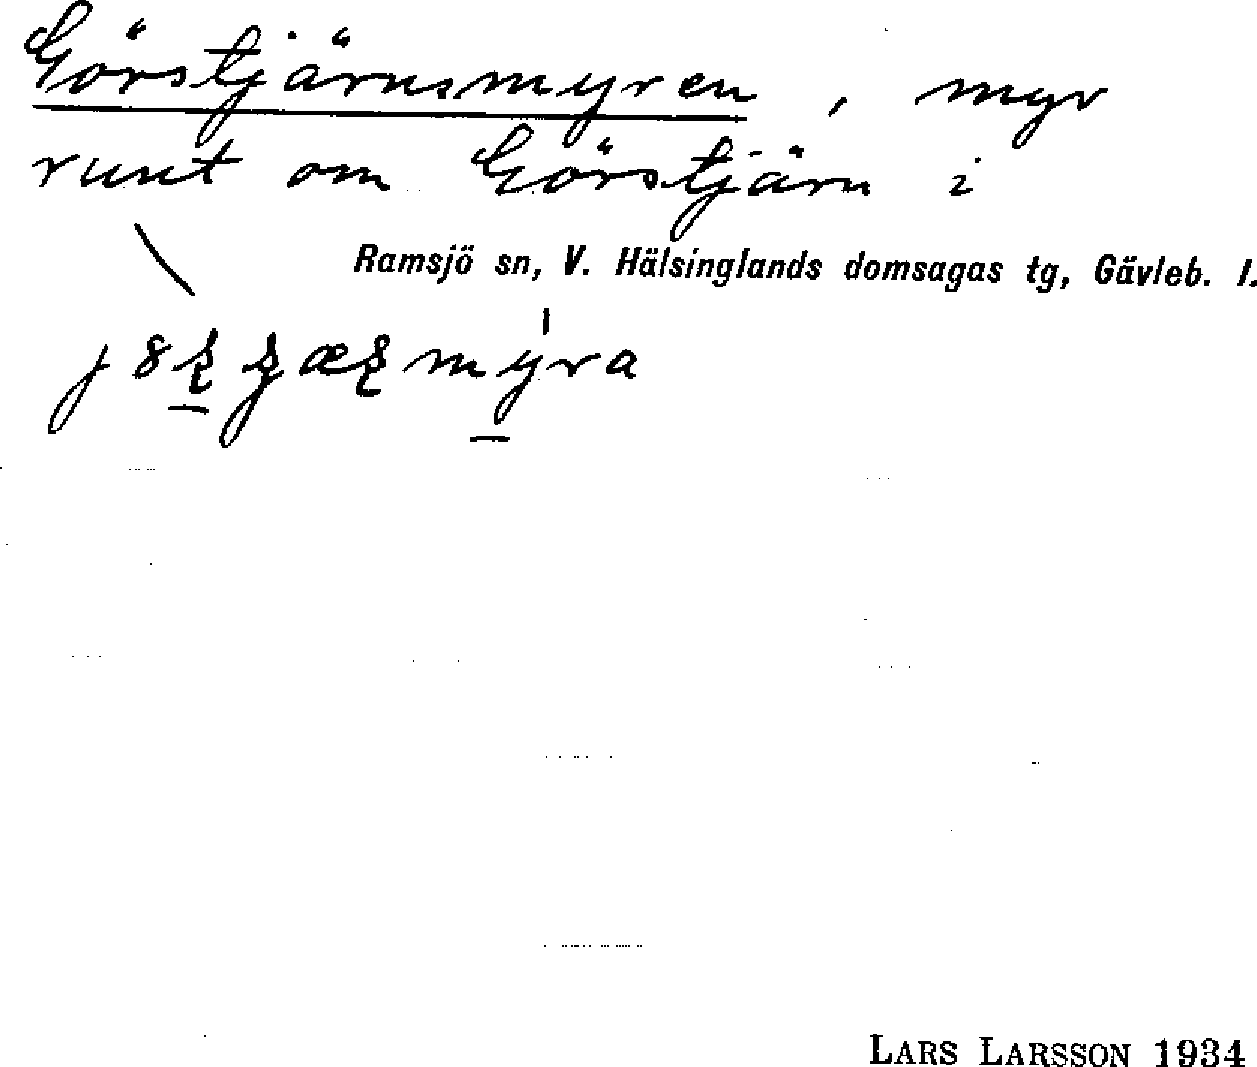 Görstjärnsmyren, myr
runt om Görstjärn i
Ramsjö sn, V. Hälsinglands domsagas tg, Gävleb. l.
LARS LARSSON 1934